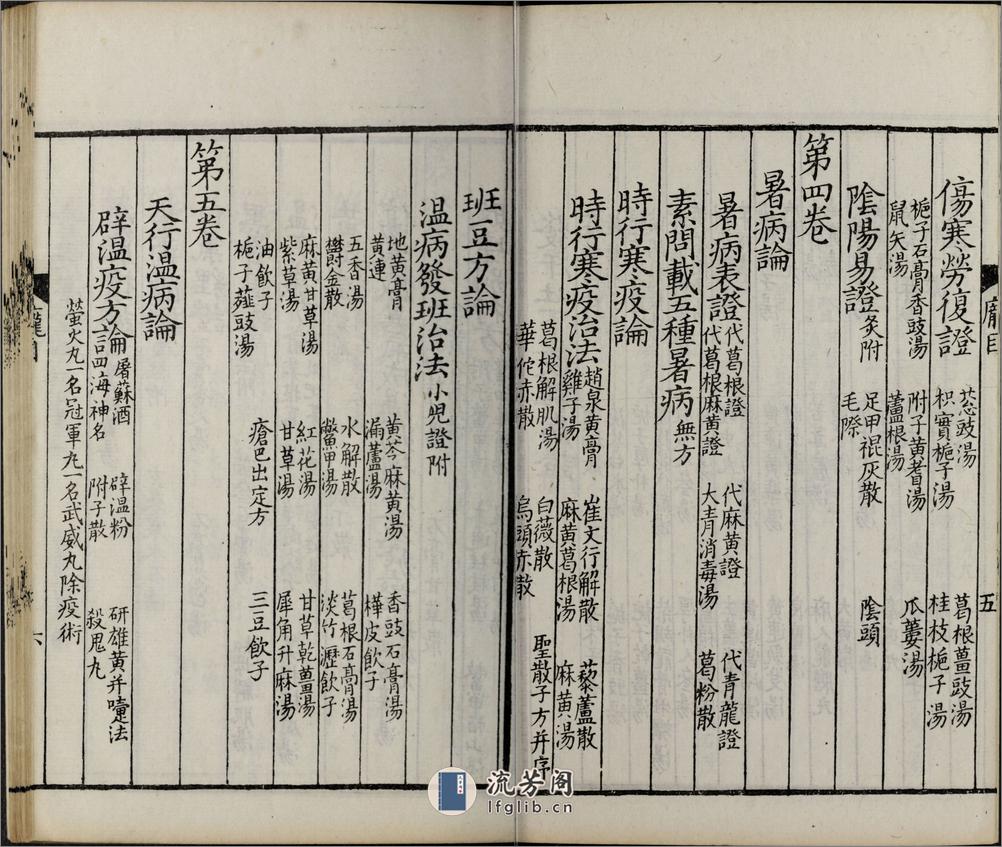 龐目
五
傷寒勞復證
葱豉湯
枳實梔子湯
葛根薑豉湯
桂枝梔子湯
梔子石膏香豉湯
鼠矢湯
附子黃耆湯
蘆根湯
瓜蔞湯
陰陽易證灸附
足甲裩灰散
毛際
陰頭
第四卷
暑病論
暑病表證
代葛根證
代葛根麻黃證
代麻黃證
大青消毒湯
代青龍證
葛粉散
素問載五種暑病無方
時行寒疫論
時行寒疫治法
趙泉黃膏
雞子湯
崔文行解散
麻黃葛根湯
藜蘆散
麻黃湯
葛根解肌湯
華佗赤散
白薇散
烏頭赤散
聖散子方并序
班豆方論
温病發班治法小兒證附
地黃膏
黃連
黃芩麻黃湯
漏蘆湯
香豉石膏湯
樺皮飲子
五香湯
鬱金散
水解散
鱉甲湯
葛根石膏湯
淡竹瀝飲子
麻黃甘草湯
紫草湯
紅花湯
甘草湯
甘草乾薑湯
犀角升麻湯
油飲子
梔子薤豉湯
瘡巴出定方
三豆飲子
第五卷
天行温病論
辟温疫方論
屠蘇酒
四海神名
辟温粉
附子散
研雄黃并嚏法
殺鬼丸
螢火丸一名冠軍丸一名武威丸除疫術
龐目
六
流芳阁
lfglib.cn